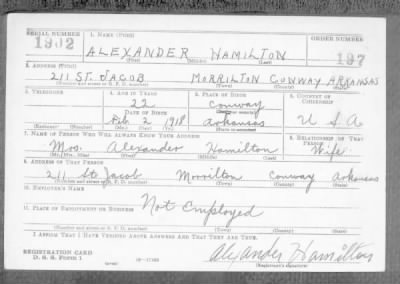 SERIAL NUMBER 1. NAME (Print) ORDER NUMBER
1902 ALEXANDER HAMILTON 197
(First) (Middle) (Last)
2. ADDRESS (Print)
211 ST. JACOB MORRILTON CONWAY ARKANSAS
(Number and street or R. F. D. number) (Town) (County) (State)
3. TELEPHONE 4. AGE IN YEARS 5. PLACE OF BIRTH 6. COUNTRY OF CITIZENSHIP
22 Conway
DATE OF BIRTH (Town or county)
Feb 2 1918 Arkansas U S A
(Exchange) (Number) (Mo.) (Day) (Yr.) (State or country)
7. NAME OF PERSON WHO WILL ALWAYS KNOW YOUR ADDRESS 8. RELATIONSHIP OF THAT PERSON
Mrs. Alexander Hamilton Wife
(Mr., Mrs., Miss) (First) (Middle) (Last)
9. ADDRESS OF THAT PERSON
211 St Jacob Morrilton Conway Arkansas
(Number and street or R. F. D. number) (Town) (County) (State)
10. EMPLOYER'S NAME
Not Employed
11. PLACE OF EMPLOYMENT OR BUSINESS
(Number and street or R. F. D. number) (Town) (County) (State)
I AFFIRM THAT I HAVE VERIFIED ABOVE ANSWERS AND THAT THEY ARE TRUE.
REGISTRATION CARD
D. S. S. FORM 1 Alexander Hamilton
(Registrant's signature)